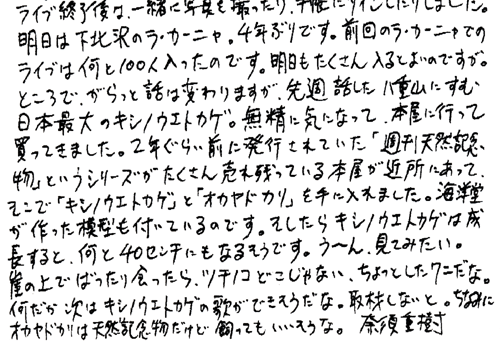 ライブ終了後は、一緒に写真を撮ったり、手帳にサインしたりしました。
明日は下北沢のラ・カーニャ。4年ぶりです。前回のラ・カーニャでの
ライブは何と100人入ったのです。明日もたくさん入るとよいのですが。
ところで、がらっと話は変わりますが、先週話した八重山にすむ
日本最大のキシノウエトカゲ。無精に気になって、本屋に行って
買ってきました。2年ぐらい前に発行されていた「週刊天然記念
物」というシリーズがたくさん売れ残っている本屋が近所にあって、
そこで「キシノウエトカゲ」と「オカヤドカリ」を手に入れました。海洋堂
が作った模型も付いているのです。そしたらキシノウエトカゲは成
長すると、何と40センチにもなるそうです。う〜ん、見てみたい。
崖の上でばったり会ったら、ツチノコどこじゃない、ちょっとしたワニだな。
何だか次はキシノウエトカゲの歌ができそうだな。取材しないと。ちなみに
オカヤドカリは天然記念物だけど飼ってもいいそうな。 奈須重樹